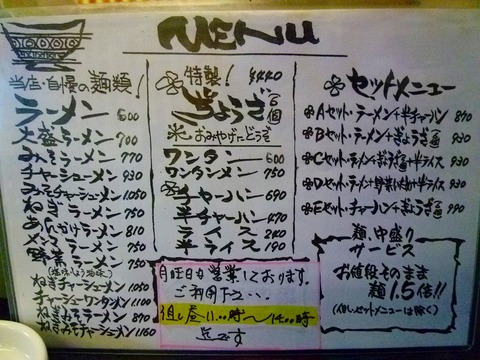 MENU
当店・自慢の麺類!
ラーメン 600
大盛ラーメン 700
みそラーメン 770
チャーシューメン 930
みそチャーシューメン 1,050
ねぎラーメン 750
あんかけラーメン 810
メンマラーメン 750
野菜ラーメン 750
(塩味・しょう油味)
ねぎチャーシューメン 1,050
チャーシューワンタンメン 1,100
ねぎみそラーメン 890
ねぎみそチャーシューメン 1,160
特製! ¥440
ぎょうざ 6個
おみやげにどうぞ
ワンタン 600
ワンタンメン 750
チャーハン 690
半チャーハン 470
ライス 240
半ライス 190
月曜日も営業しております。
ご利用下さい…
但し昼11:00時〜14:00時
迄です
セットメニュー
Aセット・ラーメン+半チャーハン 890
Bセット・ラーメン+ぎょうざ 930
Cセット・ラーメン+ぎょうざ+半ライス 930
Dセット・ラーメン+野菜いため+半ライス 930
Eセット・チャーハン+ぎょうざ 990
麺、中盛り
サービス
お値段そのまま
麺1.5倍!!
(但し、セットメニューは除く)